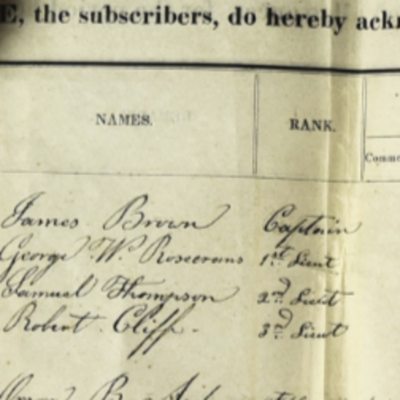 E, the subscribers, do hereby ack
NAMES. RANK.
Comme
James Brown Captain
George W. Rosecrans 1st Lieut
Samuel Thompson 2nd Lieut
Robert Cliff. 3d Lieut